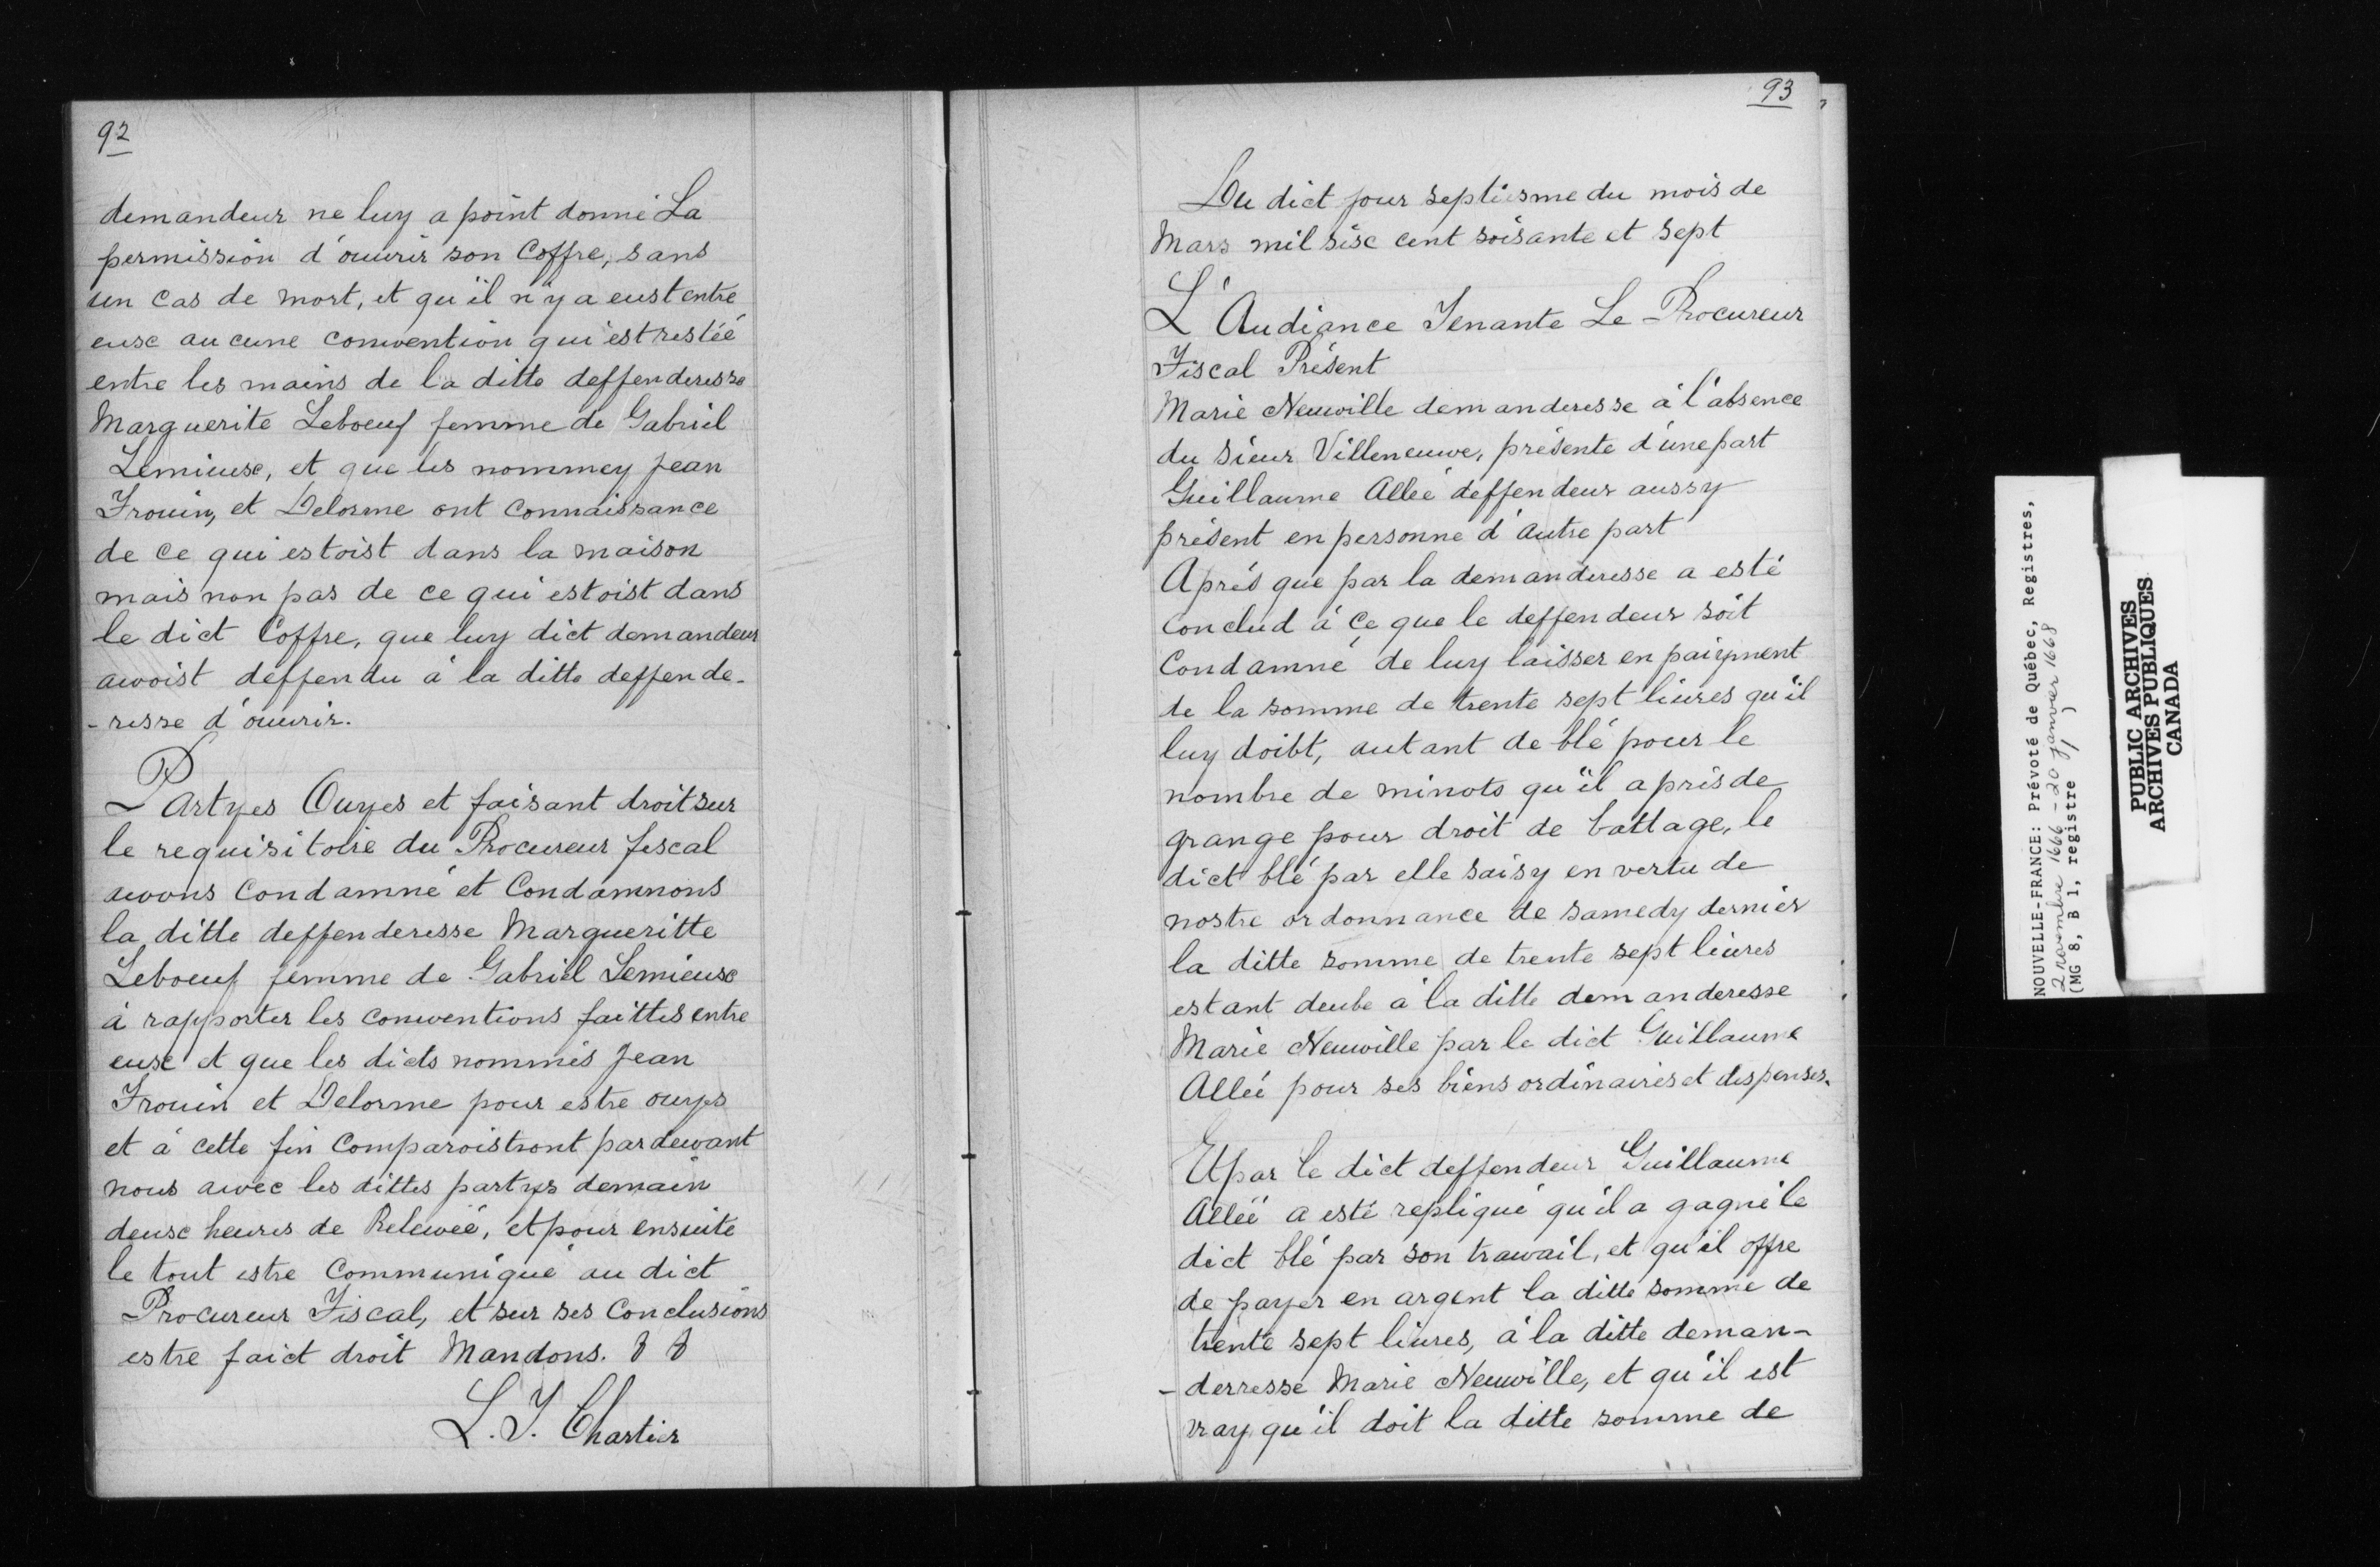 92
demandeur ne luy a point donné La
permission d'ouurir son Coffre, sans
un cas de mort, et qu'il n'y a eust entre
eusc aucune conwention qui est restéé
entre les mains de la ditte deffenderesse
Marguerite Leboeuf femme de Gabriel
Lemieusc, et que les nommey Jean
Frouin, et Delorme ont connaissance
de ce qui estoist dans la maison
mais non pas de ce qui estoist dans
le dict Coffre, que luy dict demandeur
awoist deffendu à la ditte deffende-
-resse d'ouurir.
Partyes Ouyes et faisant droit sur
le requisitoire du Procureur fiscal
awons Condamné et Condamnons
la ditte deffenderesse Margueritte
Leboeuf femme de Gabriel Lemieusc
à rapporter les conwentions faittes entre
eusc et que les dicts nommés Jean
Frouin et Delorme pour estre ouyes
et à cette fin Comparoistront par dewant
nous awec les dittes partyes demain
deusc heures de Relewéé, et pour ensuite
le tout estre Communiqué au dict
Procureur Fiscal, et sur ses Conclusions
estre faict droit Mandons. & &
L. T. Chartier
93
Du dict jour septiesme du mois de
Mars mil sisc cent soisante et sept
L'Audiance Tenante Le Procureur
Fiscal Présent
Marie Neuwille demanderesse à l'absence
du Sieur Villeneuwe, présente d'une part
Guillaume Alléé deffendeur aussy
présent en personne d'autre part
Aprés que par la demanderesse a esté
Conclud à Ce que le deffendeur soit
Condamné de luy laisser en paiyment
de la somme de trente sept liures qu'il
luy doibt, autant de blé pour le
nombre de minots qu'il a pris de
grange pour droit de battage, le
dict blé par elle saisy en vertu de
nostre ordonnance de samedy dernier
la ditte somme de trente sept liures
estant deube à la ditte demanderesse
Marie Neuwille par le dict Guillaume
Alléé pour ses biens ordinaires et despenses.
Et par le dict deffendeur Guillaume
Alléé a esté repliqué qu'il a gagné le
dict blé par son trawail, et qu'il offre
de payer en argent la ditte somme de
trente sept liures, à la ditte deman-
-derresse Marie Neuwille, et qu'il est
vray qu'il doit la ditte somme de
NOUVELLE-FRANCE: Prévoté de Québec, Registres,
2 novembre 1666 - 20 janvier 1668
(MG 8, B 1, registre 1)
PUBLIC ARCHIVES
ARCHIVES PUBLIQUES
CANADA